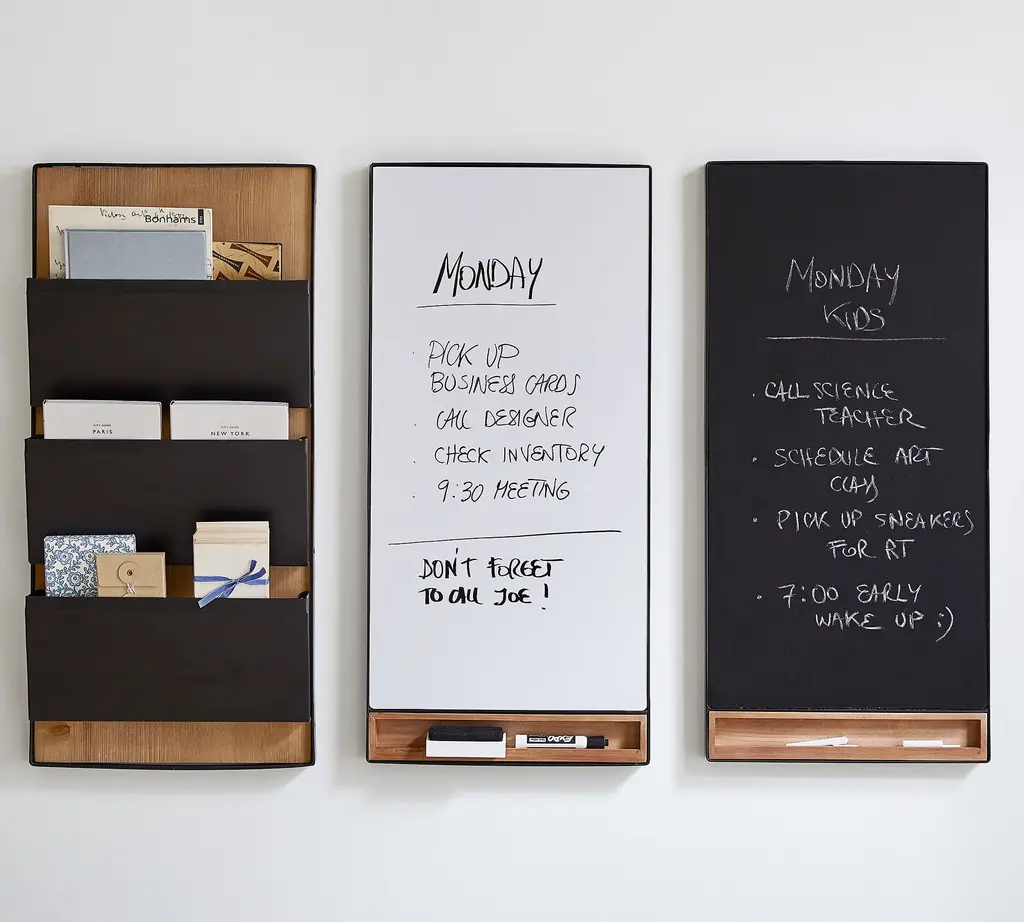 Bonhams
CITY GUIDE
PARIS
CITY GUIDE
NEW YORK
MONDAY
· PICK UP
BUSINESS CARDS
· CALL DESIGNER
· CHECK INVENTORY
· 9:30 MEETING
DON'T FORGET
TO CALL JOE!
EXPO
MONDAY
KIDS
· CALL SCIENCE
TEACHER
· SCHEDULE ART
CLASS
· PICK UP SNEAKERS
FOR RT
· 7:00 EARLY
WAKE UP :)